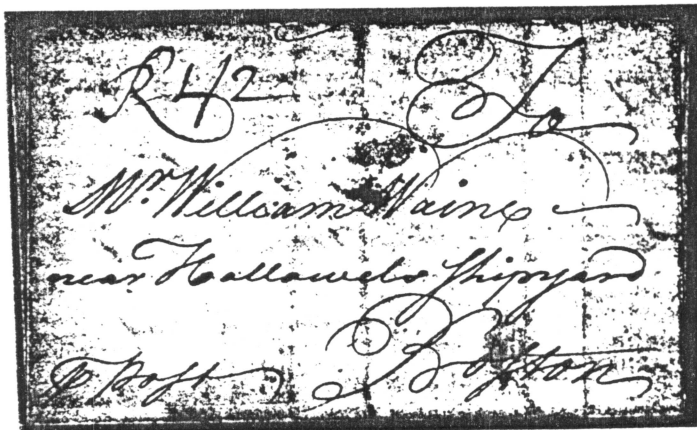 R 42 To
Mr. William Vaine
near Hallowels Shipyard
Boſton
p poſt